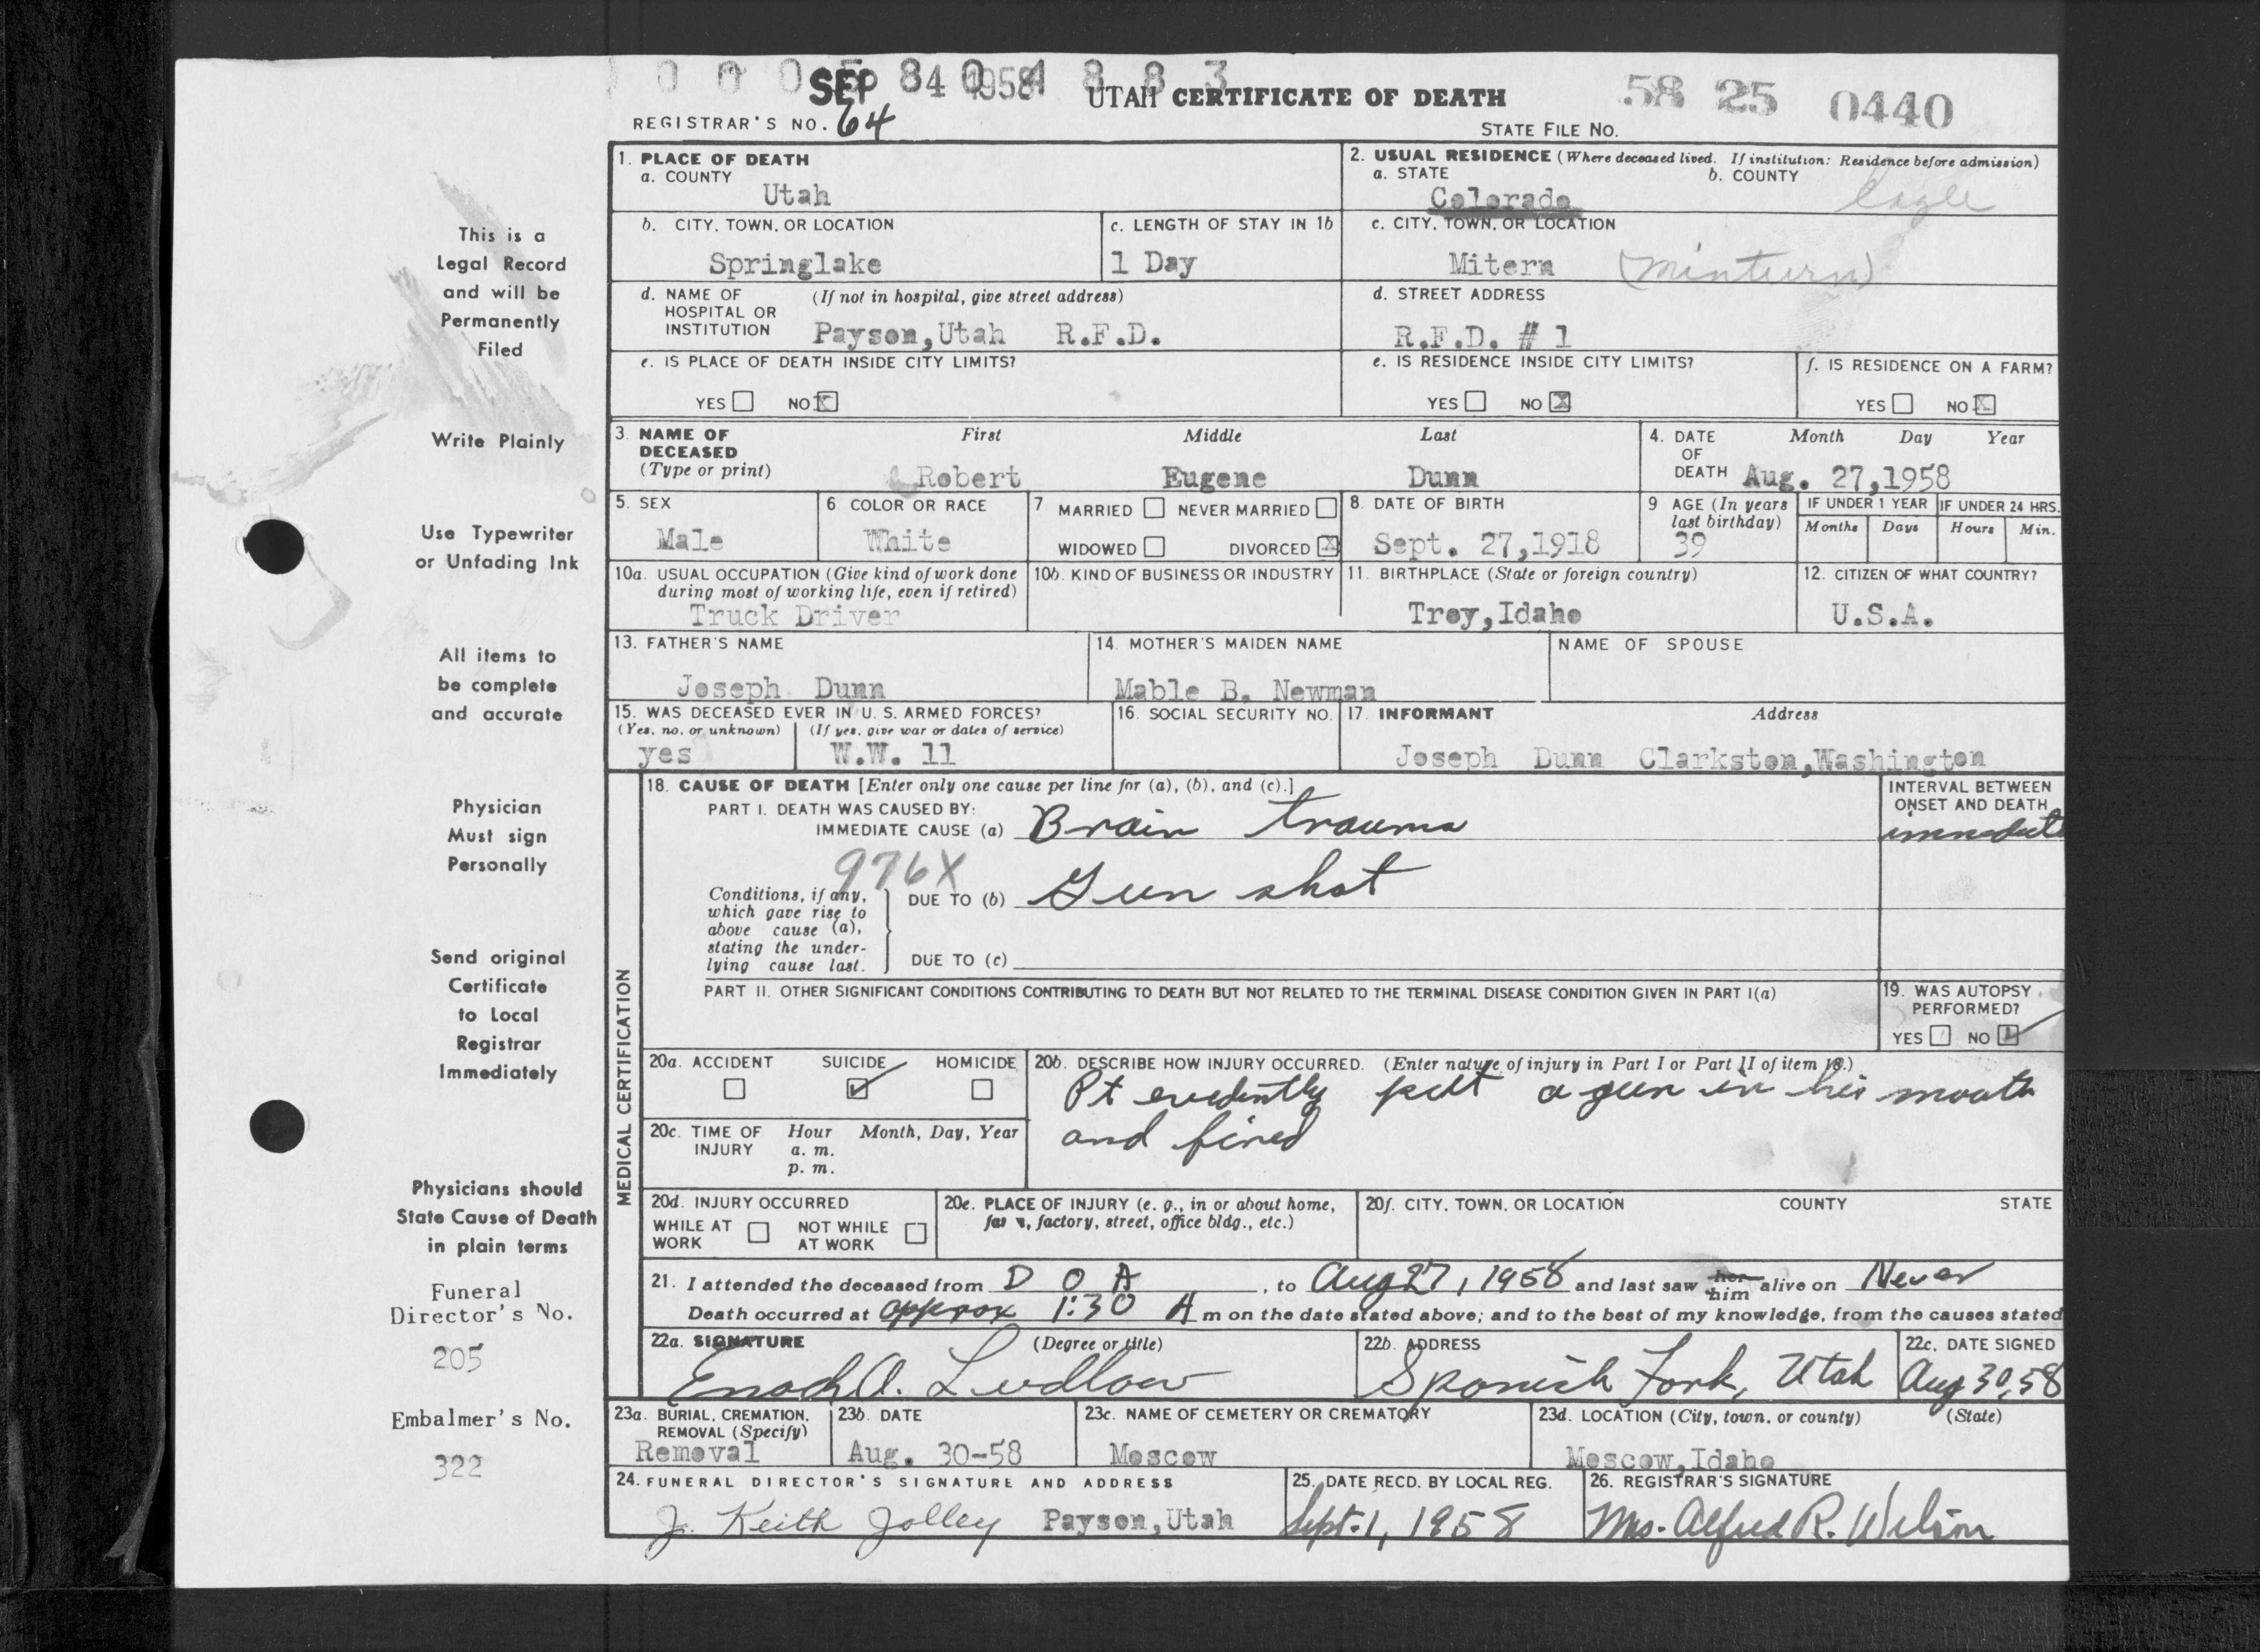 0 0 0 5 8 0 4 8 8 3
SEP 4 1958
UTAH CERTIFICATE OF DEATH
58 25 0440
REGISTRAR'S NO. 64
STATE FILE NO.
This is a
Legal Record
and will be
Permanently
Filed
Write Plainly
Use Typewriter
or Unfading Ink
All items to
be complete
and accurate
Physician
Must sign
Personally
Send original
Certificate
to Local
Registrar
Immediately
Physicians should
State Cause of Death
in plain terms
Funeral
Director's No.
205
Embalmer's No.
322
1. PLACE OF DEATH
a. COUNTY
Utah
2. USUAL RESIDENCE (Where deceased lived. If institution: Residence before admission)
a. STATE
Colorado
b. COUNTY
Eagle
b. CITY, TOWN, OR LOCATION
Springlake
c. LENGTH OF STAY IN 1b
1 Day
c. CITY, TOWN, OR LOCATION
Mitern (Minturn)
d. NAME OF HOSPITAL OR INSTITUTION
(If not in hospital, give street address)
Payson,Utah R.F.D.
d. STREET ADDRESS
R.F.D. # 1
e. IS PLACE OF DEATH INSIDE CITY LIMITS?
YES NO X
e. IS RESIDENCE INSIDE CITY LIMITS?
YES NO X
f. IS RESIDENCE ON A FARM?
YES NO X
3. NAME OF DECEASED
(Type or print)
First Middle Last
Robert Eugene Dunn
4. DATE OF DEATH
Month Day Year
Aug. 27,1958
5. SEX
Male
6 COLOR OR RACE
White
7 MARRIED NEVER MARRIED
WIDOWED DIVORCED X
8. DATE OF BIRTH
Sept. 27,1918
9 AGE (In years last birthday)
39
IF UNDER 1 YEAR
Months Days
IF UNDER 24 HRS.
Hours Min.
10a. USUAL OCCUPATION (Give kind of work done during most of working life, even if retired)
Truck Driver
10b. KIND OF BUSINESS OR INDUSTRY
11. BIRTHPLACE (State or foreign country)
Troy,Idaho
12. CITIZEN OF WHAT COUNTRY?
U.S.A.
13. FATHER'S NAME
Joseph Dunn
14. MOTHER'S MAIDEN NAME
Mable B. Newman
NAME OF SPOUSE
15. WAS DECEASED EVER IN U. S. ARMED FORCES?
(Yes, no, or unknown) (If yes, give war or dates of service)
yes W.W. 11
16. SOCIAL SECURITY NO.
17. INFORMANT Address
Joseph Dunn Clarkston,Washington
MEDICAL CERTIFICATION
18. CAUSE OF DEATH [Enter only one cause per line for (a), (b), and (c).]
PART I. DEATH WAS CAUSED BY:
IMMEDIATE CAUSE (a) Brain trauma
INTERVAL BETWEEN ONSET AND DEATH
immediate
976X
Conditions, if any, which gave rise to above cause (a), stating the underlying cause last.
DUE TO (b) Gun shot
DUE TO (c)
PART II. OTHER SIGNIFICANT CONDITIONS CONTRIBUTING TO DEATH BUT NOT RELATED TO THE TERMINAL DISEASE CONDITION GIVEN IN PART I(a)
19. WAS AUTOPSY PERFORMED?
YES NO
20a. ACCIDENT SUICIDE HOMICIDE
20b. DESCRIBE HOW INJURY OCCURRED. (Enter nature of injury in Part I or Part II of item 18.)
Pt evedently put a gun in his mouth
and fired
20c. TIME OF INJURY
Hour Month, Day, Year
a. m.
p. m.
20d. INJURY OCCURRED
WHILE AT WORK NOT WHILE AT WORK
20e. PLACE OF INJURY (e. g., in or about home, farm, factory, street, office bldg., etc.)
20f. CITY, TOWN, OR LOCATION COUNTY STATE
21. I attended the deceased from D O A, to Aug 27, 1958 and last saw her him alive on Never
Death occurred at approx 1:30 A m on the date stated above; and to the best of my knowledge, from the causes stated
22a. SIGNATURE (Degree or title)
Enoch A. Ludlow
22b. ADDRESS
Spanish Fork, Utah
22c. DATE SIGNED
Aug 30, 58
23a. BURIAL, CREMATION, REMOVAL (Specify)
Removal
23b. DATE
Aug. 30-58
23c. NAME OF CEMETERY OR CREMATORY
Moscow
23d. LOCATION (City, town, or county) (State)
Moscow,Idaho
24. FUNERAL DIRECTOR'S SIGNATURE AND ADDRESS
J. Keith Jolley Payson,Utah
25. DATE RECD. BY LOCAL REG.
Sept. 1, 1958
26. REGISTRAR'S SIGNATURE
Mrs. Alfred R. Wilson